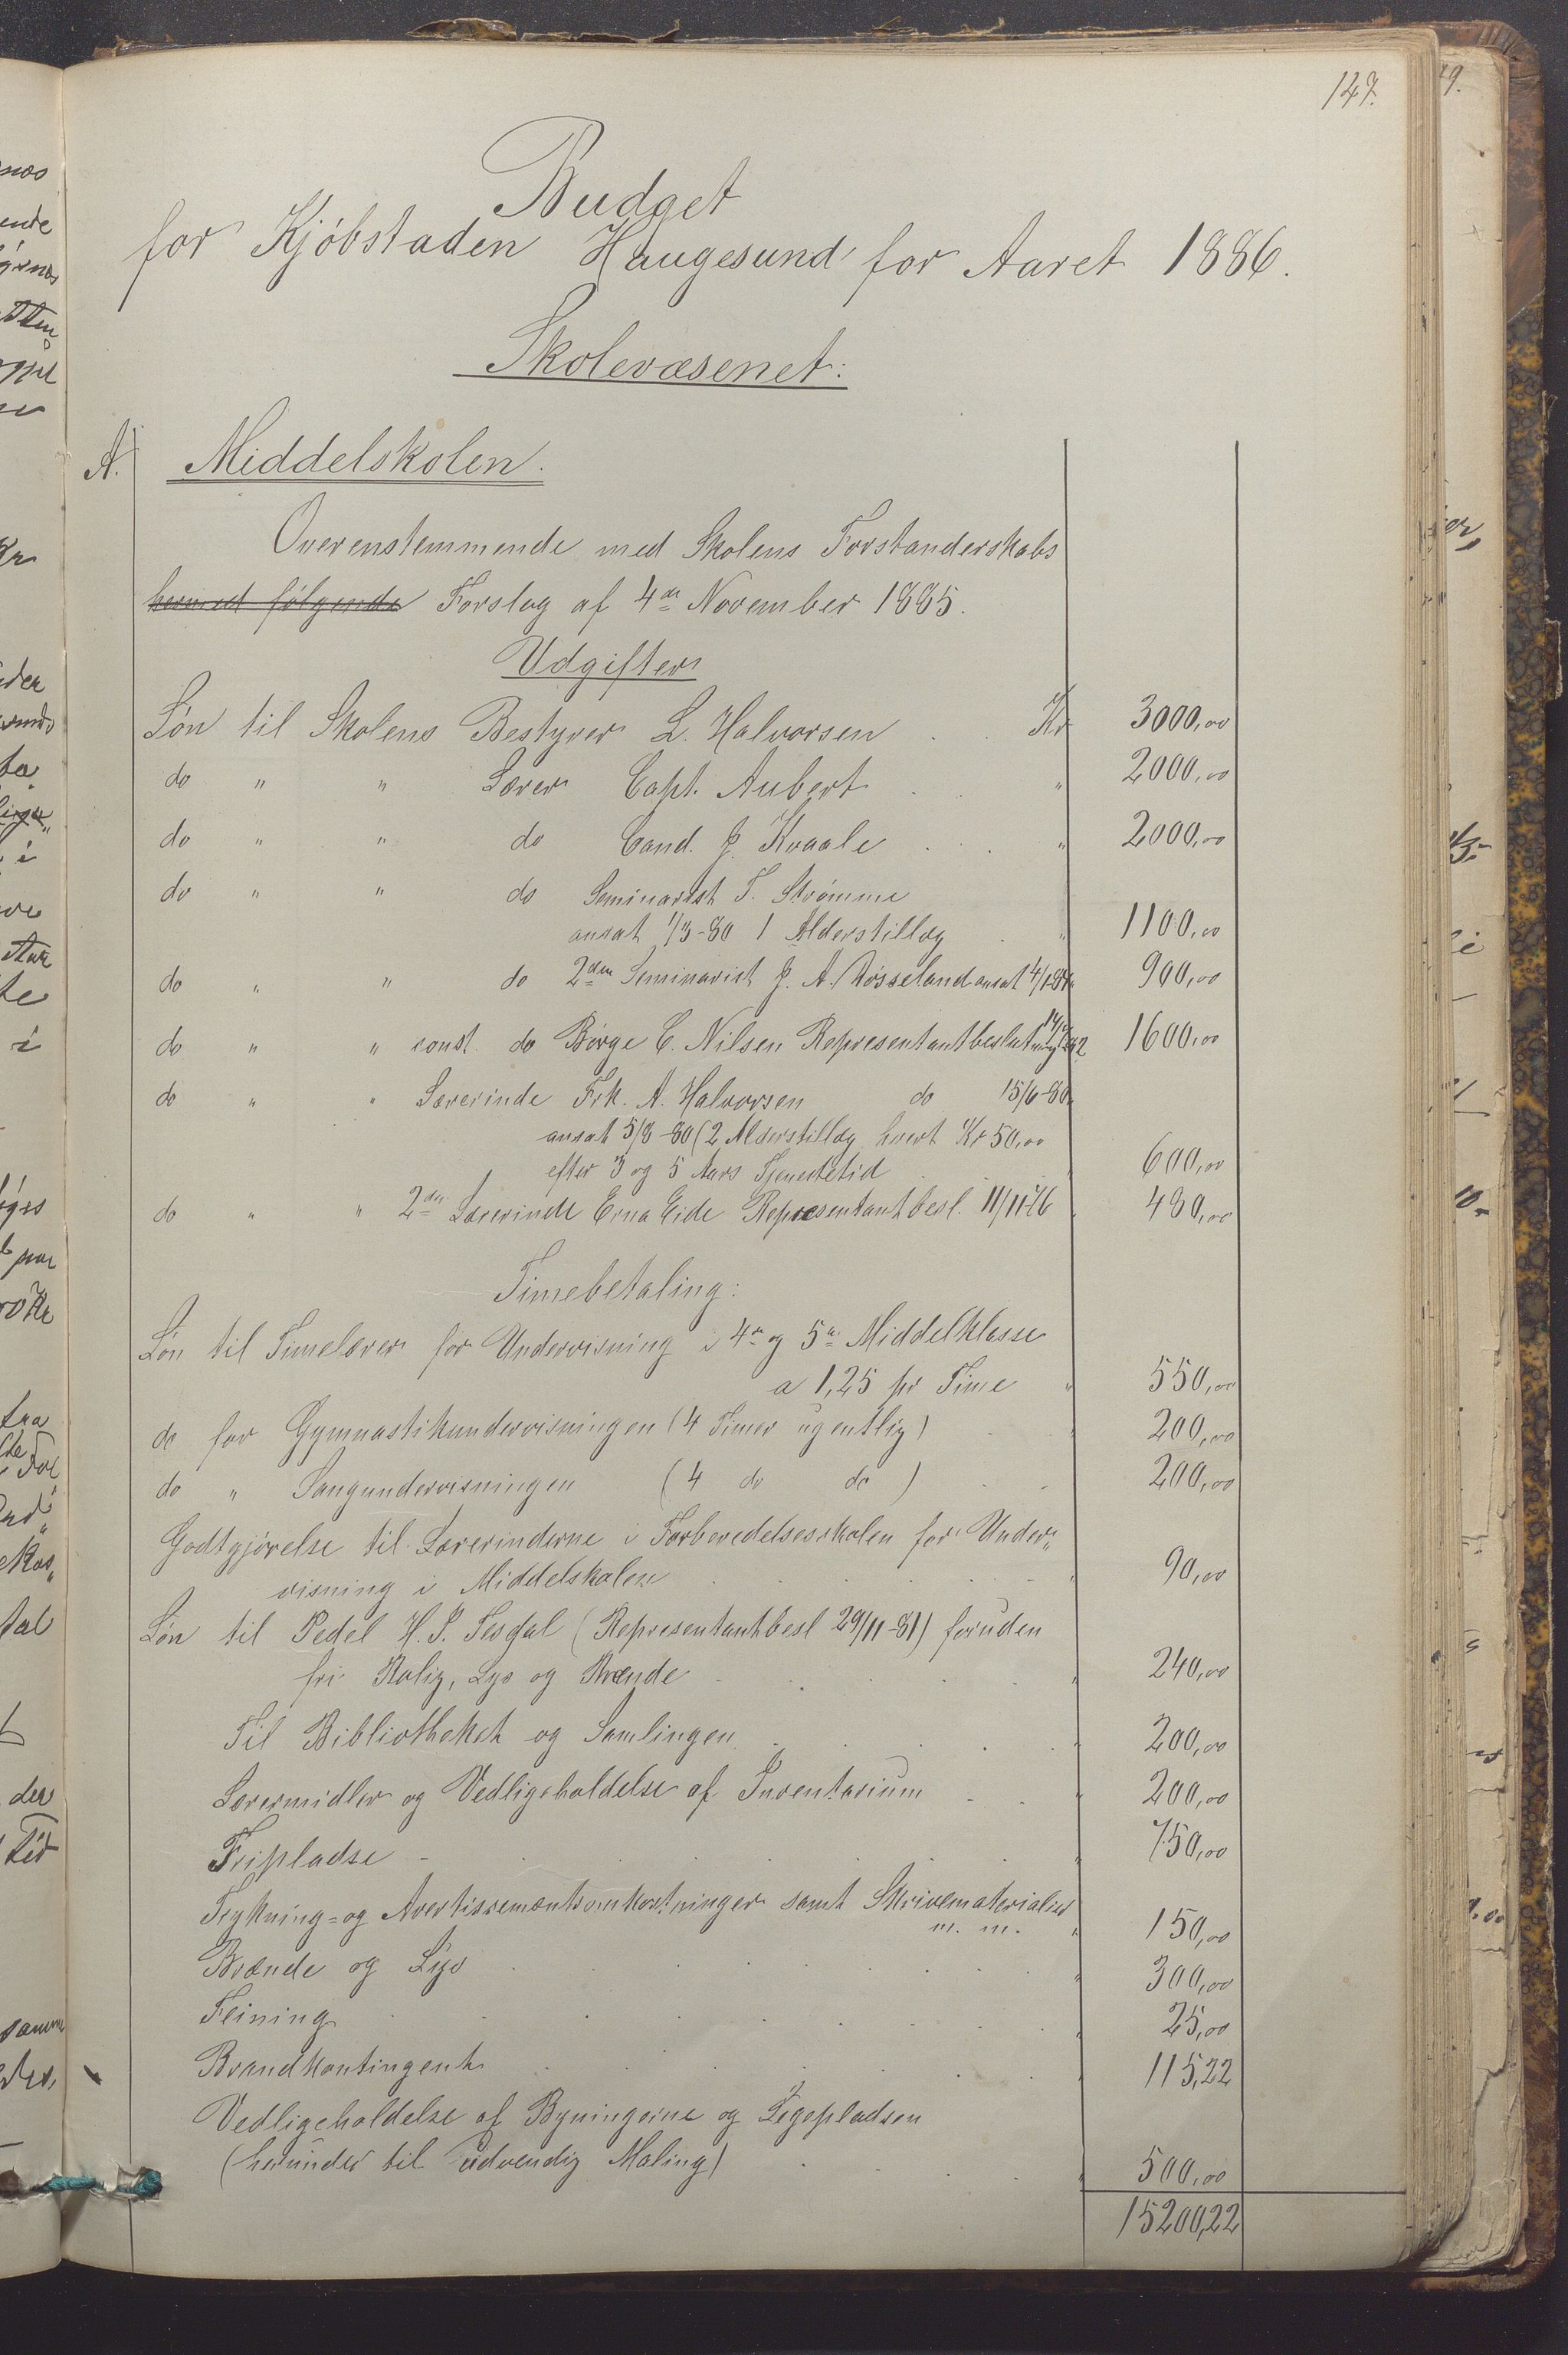 147.
Budget
for Kjøbstaden Haugesund for Aaret 1886.
Skolevæsenet:
A. Middelskolen.
Overenstemmende med Skolens Forstanderskabs
hermed følgende Forslag af 4de November 1885.
Udgifter
Løn til Skolens Bestyrer L. Halvorsen . . Kr 3000,00
do " " Lærer Capt. Aubert . . " 2000,00
do " " do Cand. J. Kvaale . . . " 2000,00
do " " do Seminarist T. Strømme
ansat 1/3-80 1 Alderstillæg . " 1100,00
do " " do 2den Seminarist J. A. Røsseland ansat 900,00
do " " const. do Børge C. Nilsen Representantbeslutning 1600,00
do " " Lærerinde Frk. A. Halvorsen do 15/6-80
ansat 5/8-80 (2 Alderstillæg hvert Kr 50,00
efter 3 og 5 Aars Tjenestetid . . " 600,00
do " " 2den Lærerinde Erna Eide Representantbesl. 11/11-76 480,00
Timebetaling:
Løn til Timelærer for Undervisning i 4de og 5te Middelklasse
a 1,25 pr Time " 550,00
do for Gymnastikundervisningen (4 Timer ugentlig) . " 200,00
do " Sangundervisningen (4 do do ) . . 200,00
Godtgjørelse til Lærerinderne i Forberedelsesskolen for Under„
visning i Middelskolen . . . . . " 90,00
Løn til Pedel H. P. (Representantbesl 29/11-81) foruden
fri Bolig, Lys og Brænde . . . . . " 240,00
Til Bibliotheket og Samlingen . . . . " 200,00
Lærermidler og Vedligeholdelse af Inventarium . . " 200,00
Fripladse . . . . . . " 750,00
Trykning= og Avertissementsomkostninger samt Skrivematerialier
m. m. " 150,00
Brænde og Lys . . . . . . " 300,00
Feining . . . . . . " 25,00
Brandkontingent . . . . . . " 115,22
Vedligeholdelse af Bygningerne og Legepladsen
(herunder til udvendig Maling) . . . " 500,00
15200,22